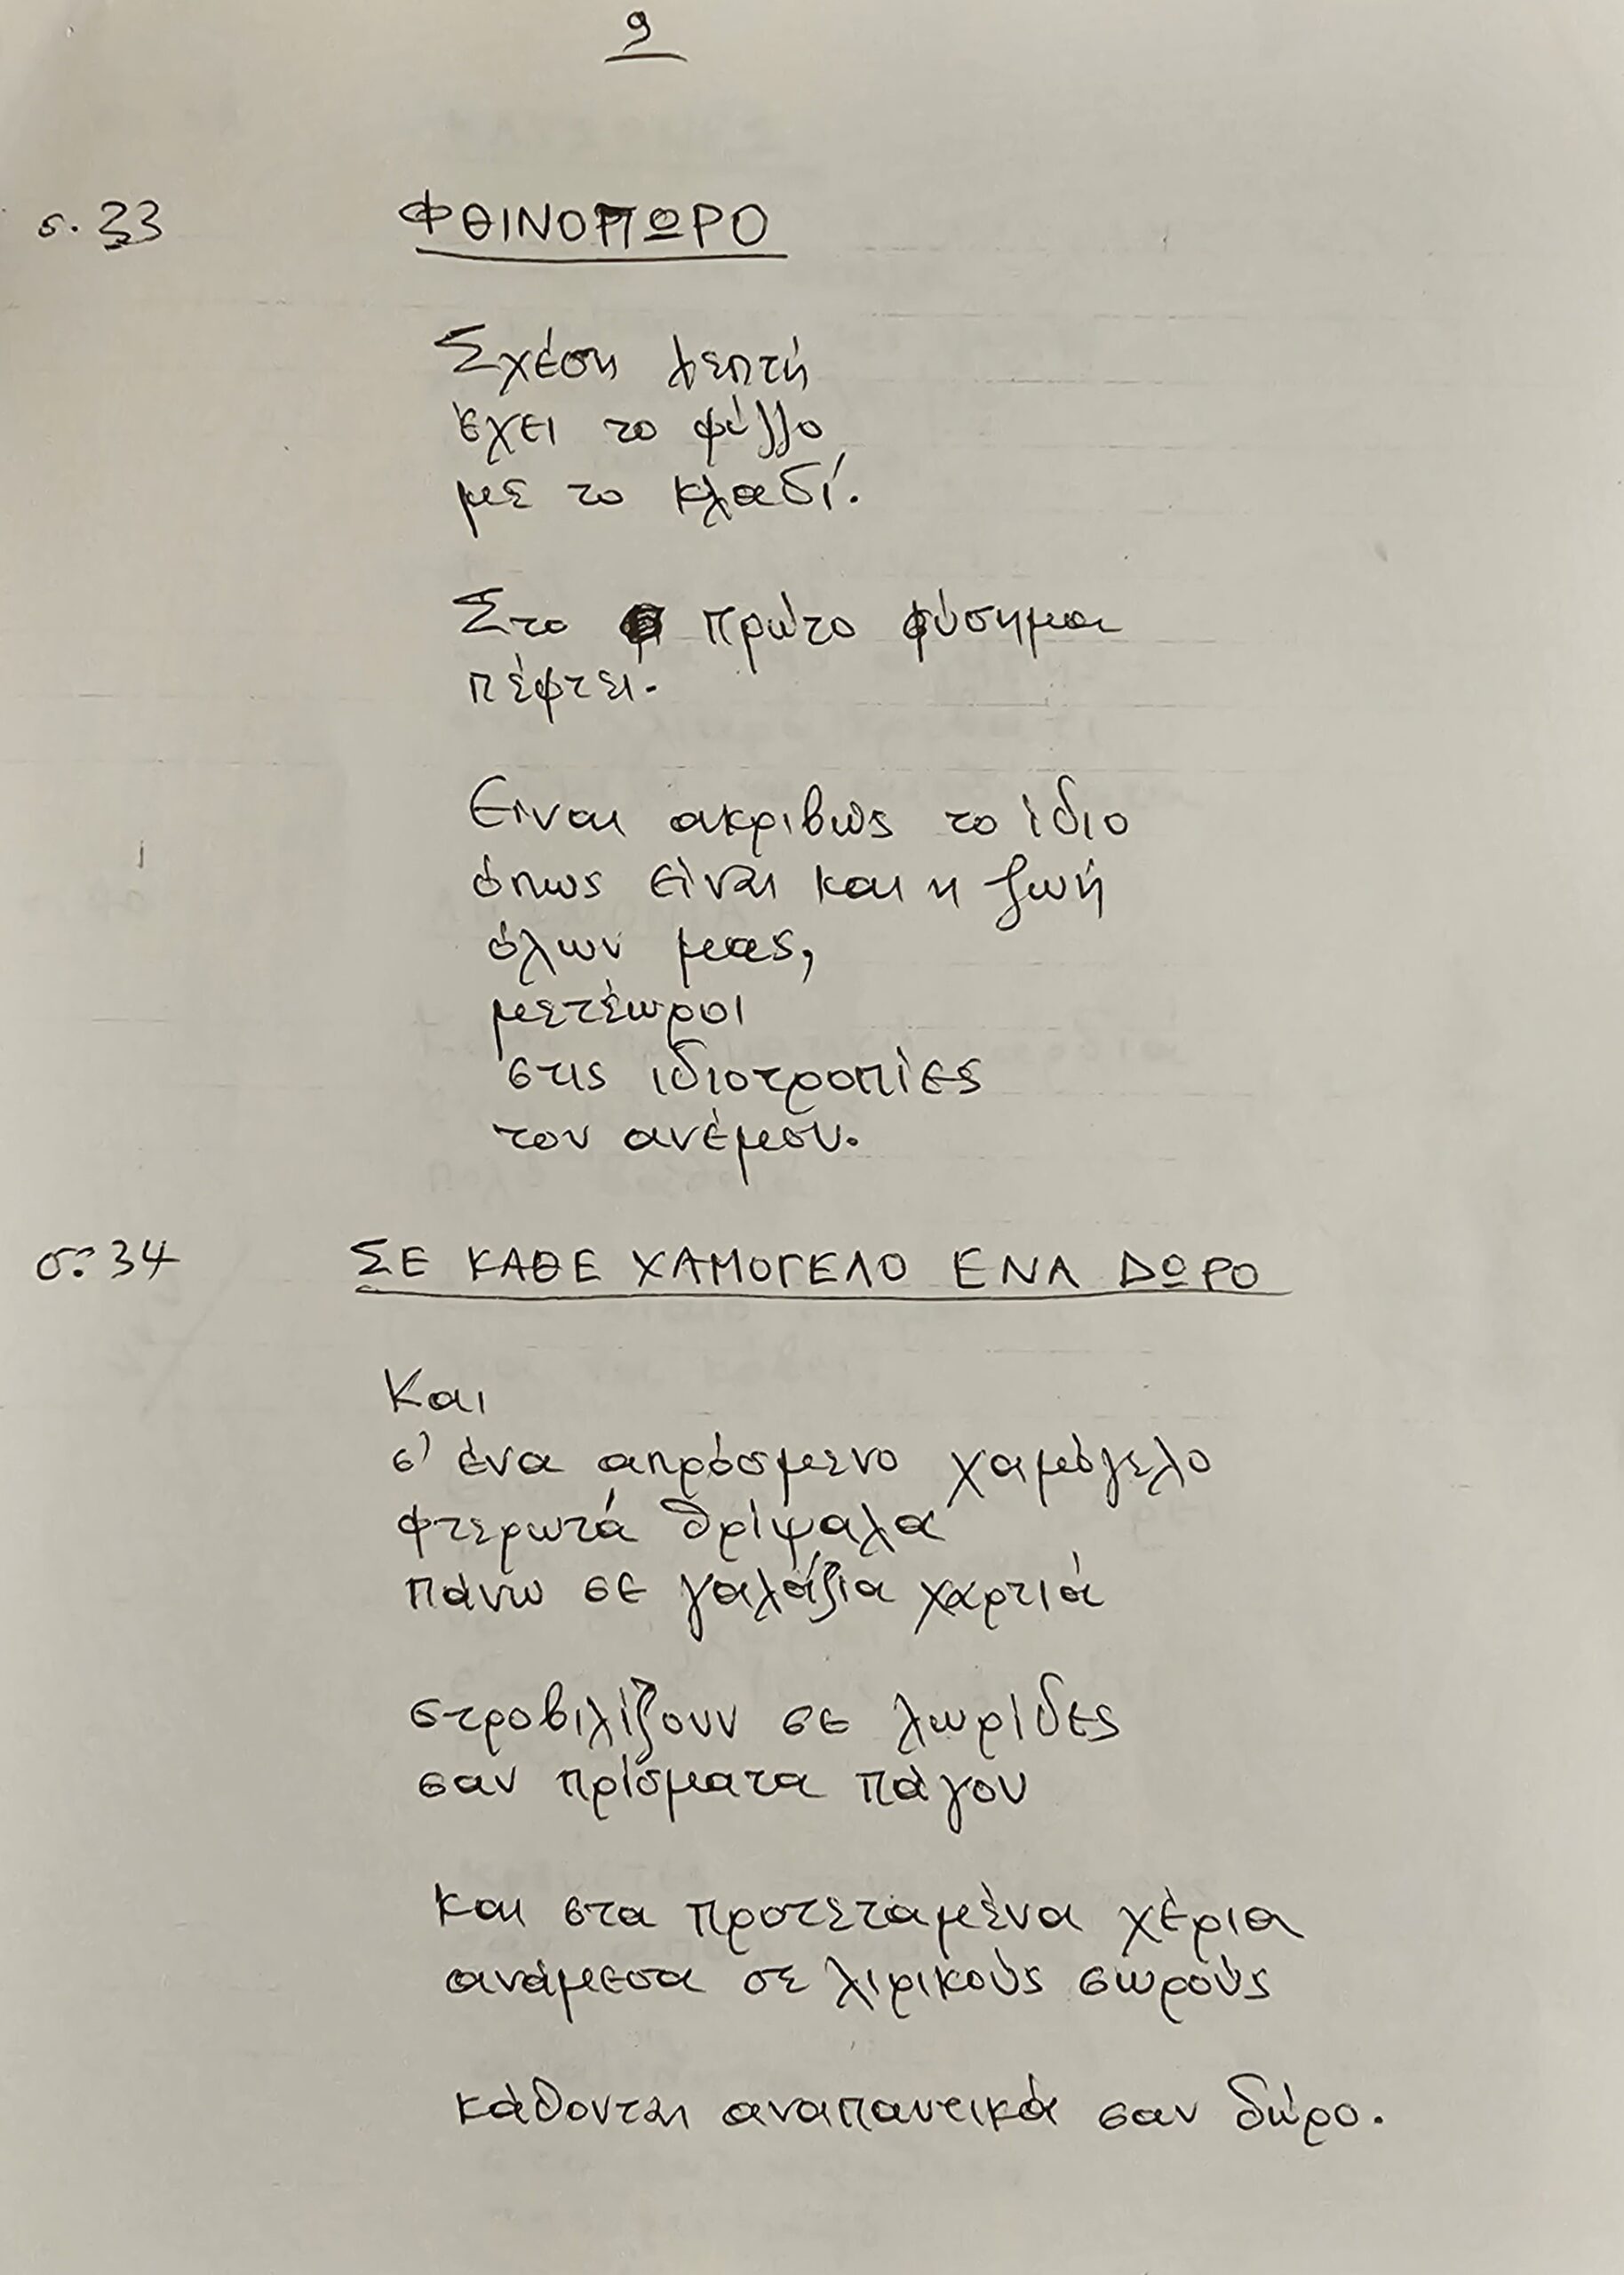 9
σ. 33 ΦΘΙΝΟΠΩΡΟ
Σχέση λεπτή
έχει το φύλλο
με το κλαδί.
Στο πρώτο φύσημα
πέφτει.
Είναι ακριβώς το ίδιο
όπως είναι και η ζωή
όλων μας,
μετέωροι
στις ιδιοτροπίες
του ανέμου.
σ. 34 ΣΕ ΚΑΘΕ ΧΑΜΟΓΕΛΟ ΕΝΑ ΔΩΡΟ
Και
σ' ένα απρόσμενο χαμόγελο
φτερωτά θρίψαλα
πάνω σε γαλάζια χαρτιά
στροβιλίζουν σε λωρίδες
σαν πρίσματα πάγου
και στα προτεταμένα χέρια
ανάμεσα σε λιρικούς σωρούς
κάθονται αναπαυτικά σαν δώρο.